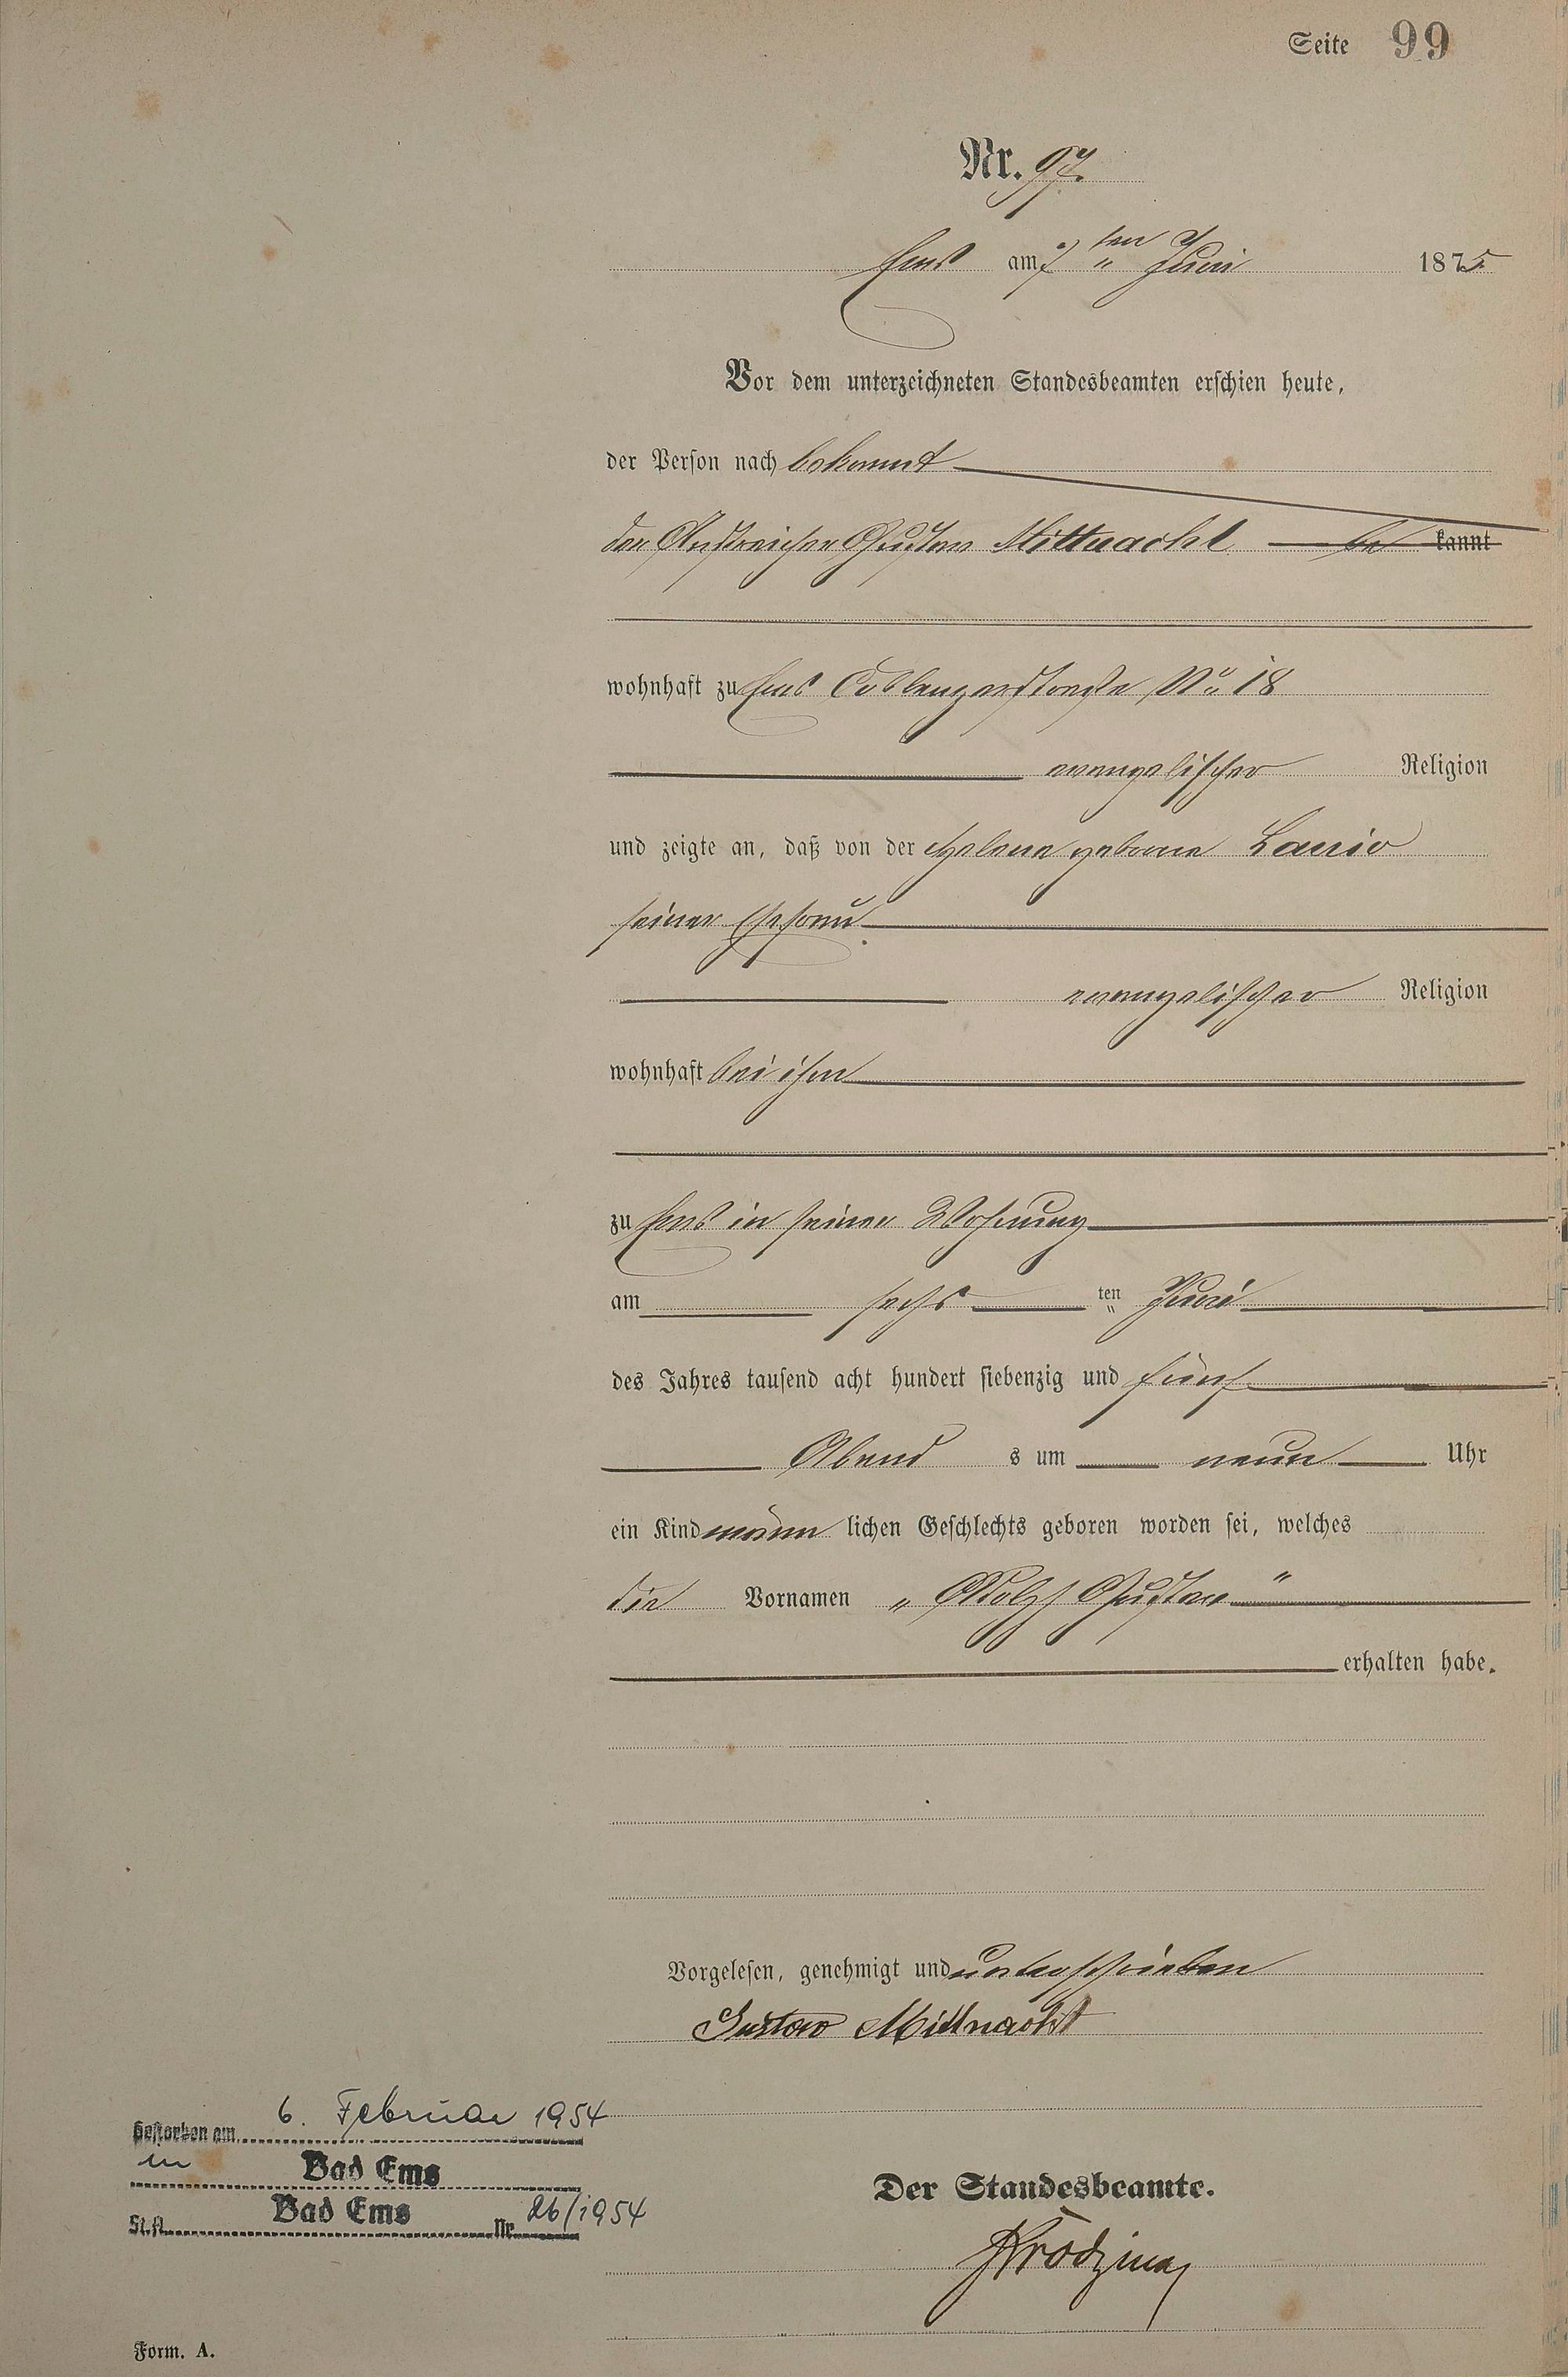 Seite 99
Nr. 97.
Ems am 7ten Juni 1875
Vor dem unterzeichneten Standesbeamten erschien heute,
der Person nach bekannt
der Anstreicher Gustav Mittnacht be kannt
wohnhaft zu Ems Coblenzerstraße No 18
evangelischer Religion
und zeigte an, daß von der Helene geborne Lanio
seiner Ehefrau
evangelischer Religion
wohnhaft bei ihm
zu Ems in seiner Wohnung
am sechs ten Juni
des Jahres tausend acht hundert siebenzig und fünf
Abend s um neun Uhr
ein Kind männ lichen Geschlechts geboren worden sei, welches
die Vornamen „Adolf Gustav"
erhalten habe.
Vorgelesen, genehmigt und unterschrieben
Gustav Mittnacht
Gestorben am 6. Februar 1954
in Bad Ems
St.A. Bad Ems Nr. 26/1954
Der Standesbeamte.
Form. A.